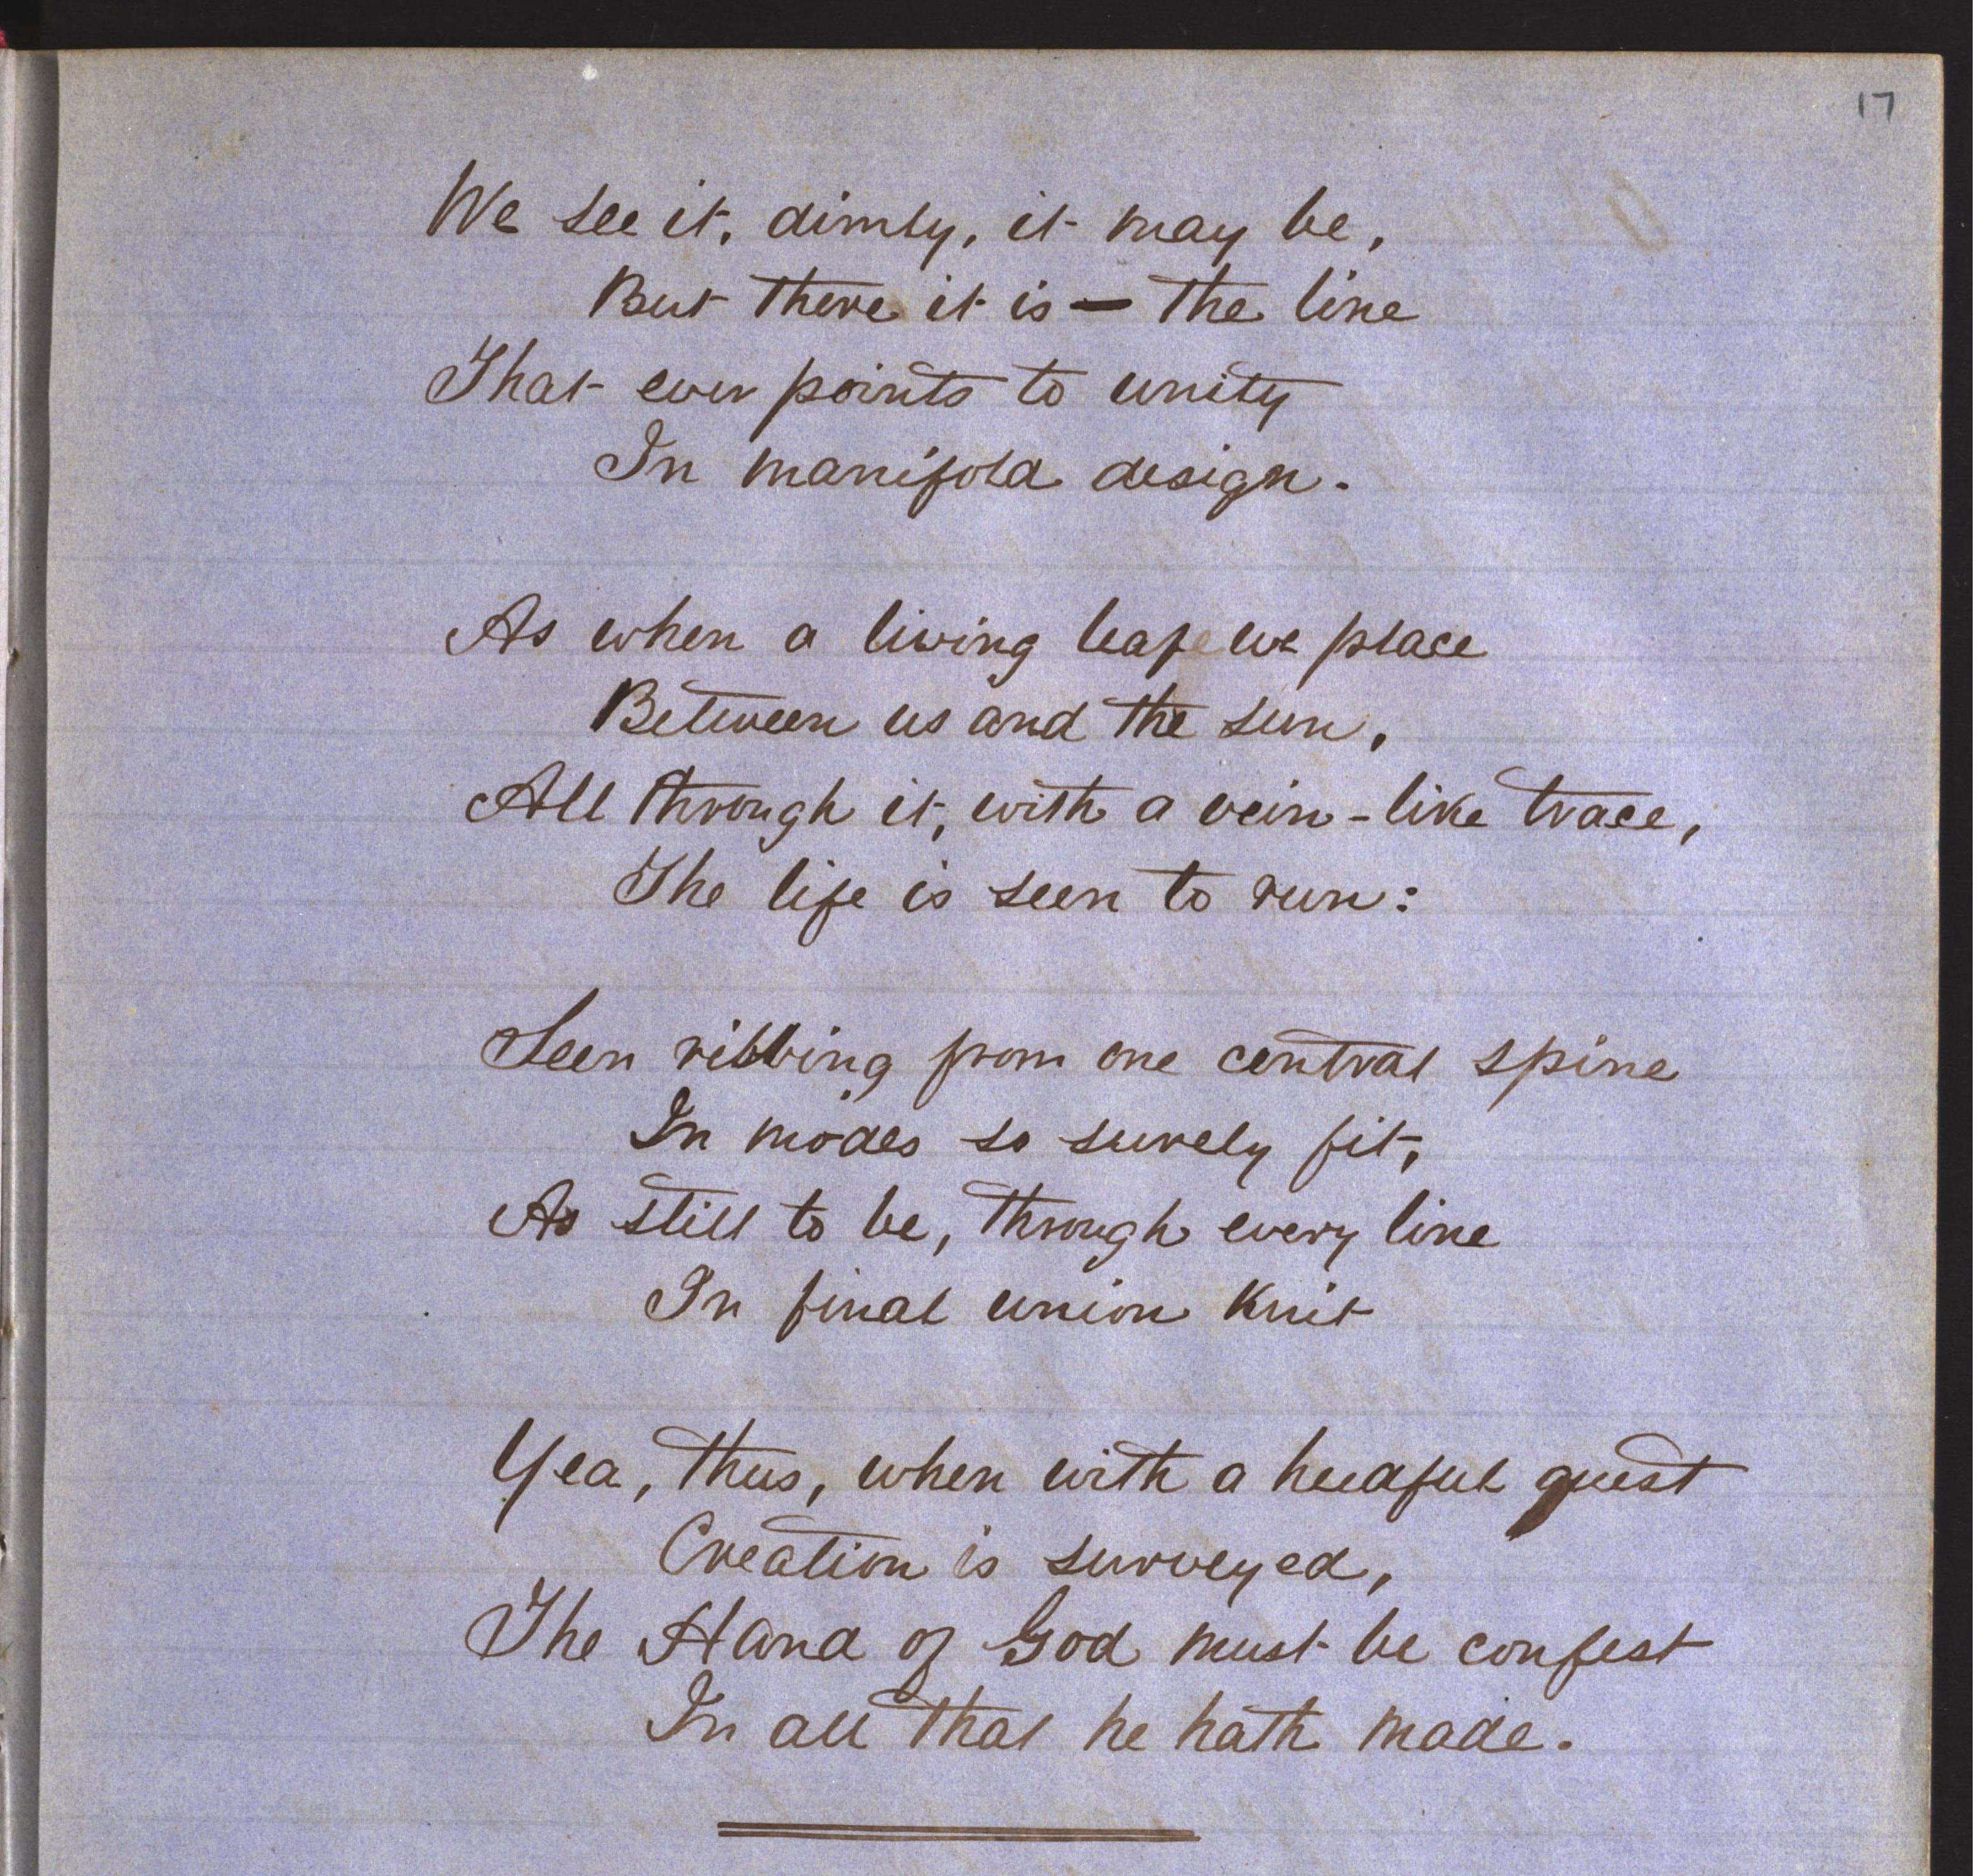 17
We see it, dimly, it may be,
But there it is — the line
That ever points to unity
In manifold design.
As when a living leaf we place
Between us and the sun,
All through it, with a vein-like trace,
The life is seen to run:
Seen ribbing from one central spine
In modes so surely fit,
As still to be, through every line
In final union knit
Yea, thus, when with a heedful quest
Creation is surveyed,
The Hand of God must be confest
In all that he hath made.